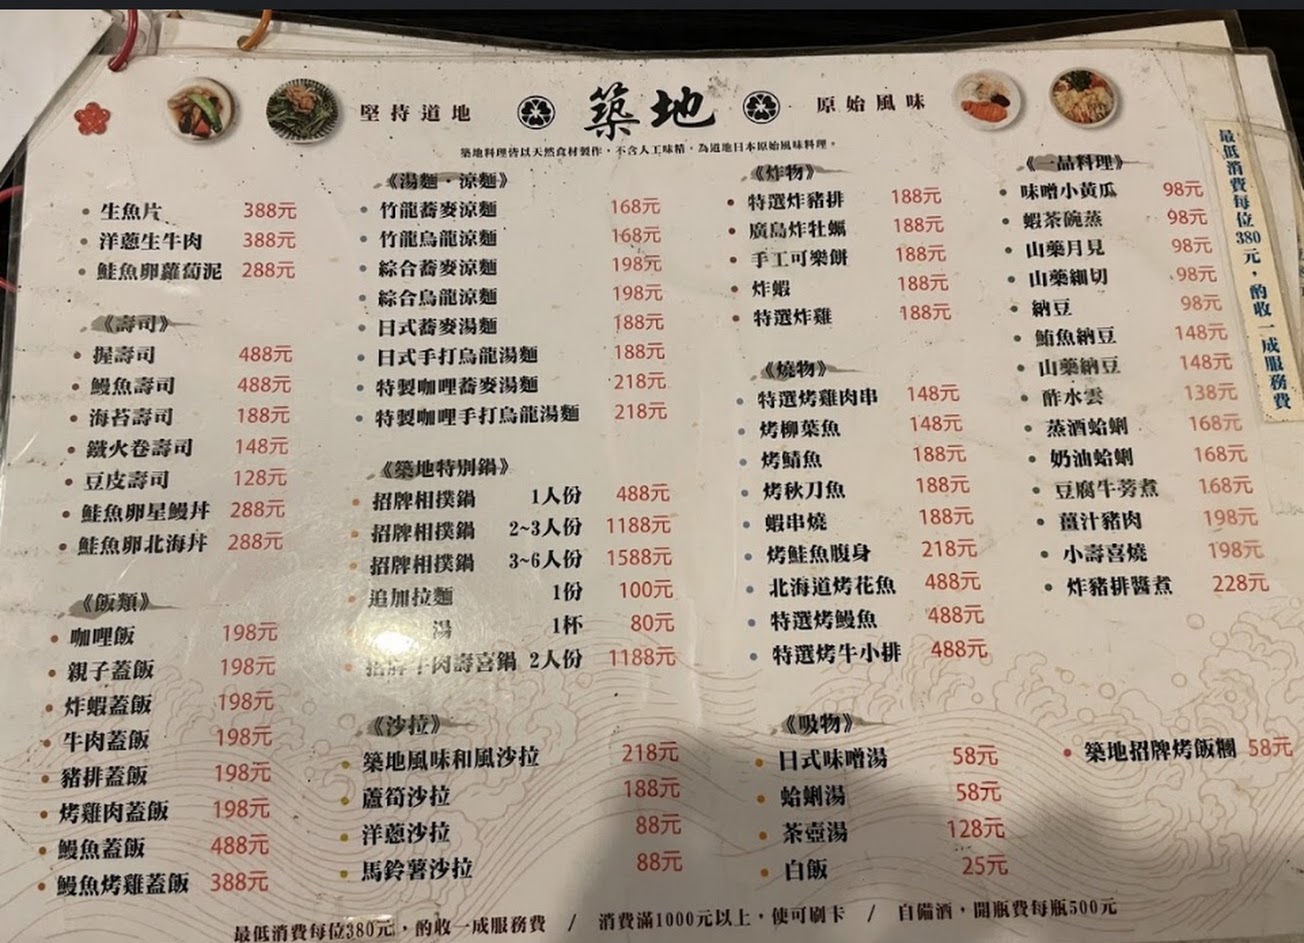 堅持道地
築地
原始風味
築地料理皆以天然食材製作，不含人工味精，為道地日本原始風味料理。
生魚片 388元
洋蔥生牛肉 388元
鮭魚卵蘿蔔泥 288元
《壽司》
握壽司 488元
鰻魚壽司 488元
海苔壽司 188元
鐵火卷壽司 148元
豆皮壽司 128元
鮭魚卵星鰻丼 288元
鮭魚卵北海丼 288元
《飯類》
咖哩飯 198元
親子蓋飯 198元
炸蝦蓋飯 198元
牛肉蓋飯 198元
豬排蓋飯 198元
烤雞肉蓋飯 198元
鰻魚蓋飯 488元
鰻魚烤雞蓋飯 388元
《湯麵·涼麵》
竹龍蕎麥涼麵 168元
竹龍烏龍涼麵 168元
綜合蕎麥涼麵 198元
綜合烏龍涼麵 198元
日式蕎麥湯麵 188元
日式手打烏龍湯麵 188元
特製咖哩蕎麥湯麵 218元
特製咖哩手打烏龍湯麵 218元
《築地特別鍋》
招牌相撲鍋 1人份 488元
招牌相撲鍋 2~3人份 1188元
招牌相撲鍋 3~6人份 1588元
追加拉麵 1份 100元
湯 1杯 80元
招牌牛肉壽喜鍋 2人份 1188元
《沙拉》
築地風味和風沙拉 218元
蘆筍沙拉 188元
洋蔥沙拉 88元
馬鈴薯沙拉 88元
《炸物》
特選炸豬排 188元
廣島炸牡蠣 188元
手工可樂餅 188元
炸蝦 188元
特選炸雞 188元
《燒物》
特選烤雞肉串 148元
烤柳葉魚 148元
烤鯖魚 188元
烤秋刀魚 188元
蝦串燒 188元
烤鮭魚腹身 218元
北海道烤花魚 488元
特選烤鰻魚 488元
特選烤牛小排 488元
《吸物》
日式味噌湯 58元
蛤蜊湯 58元
茶壺湯 128元
白飯 25元
《一品料理》
味噌小黃瓜 98元
蝦茶碗蒸 98元
山藥月見 98元
山藥細切 98元
納豆 98元
鮪魚納豆 148元
山藥納豆 148元
酢水雲 138元
蒸酒蛤蜊 168元
奶油蛤蜊 168元
豆腐牛蒡煮 168元
薑汁豬肉 198元
小壽喜燒 198元
炸豬排醬煮 228元
築地招牌烤飯糰 58元
最低消費每位380元，酌收一成服務費
最低消費每位380元，酌收一成服務費 / 消費滿1000元以上，使可刷卡 / 自備酒，開瓶費每瓶500元